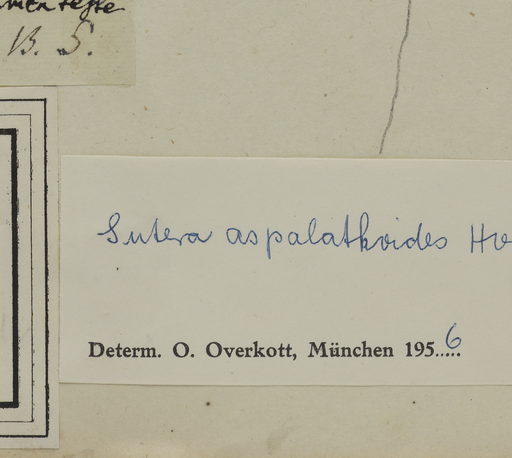 teste
B. S.
Sutera aspalathoides
Determ. O. Overkott, München 1956